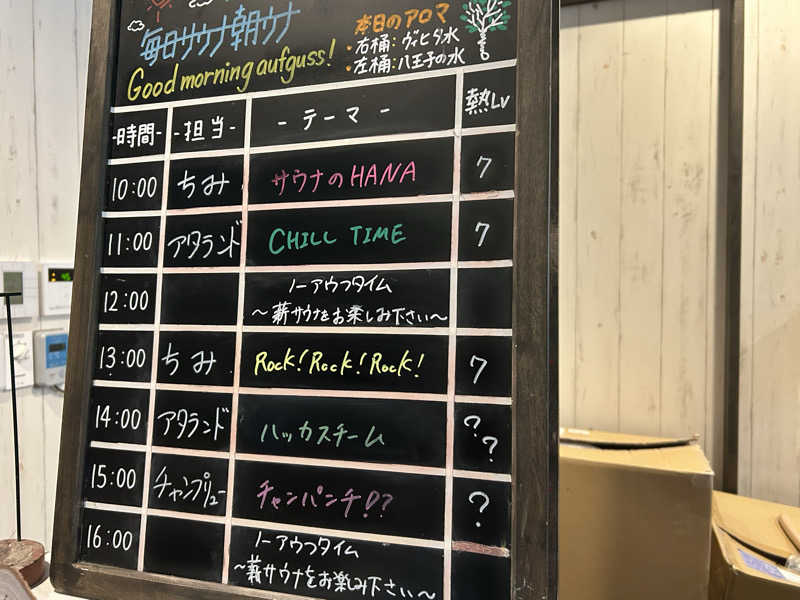 毎日サウナ朝ウナ
Good morning aufguss!
本日のアロマ
・右桶:ヴィヒタ水
・左桶:八王子の水
-時間- -担当- -テーマ- 熱Lv
10:00 ちみ サウナのHANA 7
11:00 アタランド CHILL TIME 7
12:00 ノーアウフタイム
〜薪サウナをお楽しみ下さい〜
13:00 ちみ Rock! Rock! Rock! 7
14:00 アタランド ハッカスチーム ??
15:00 チャンプリュー チャンパンチ!? ?
16:00 ノーアウフタイム
〜薪サウナをお楽しみ下さい〜